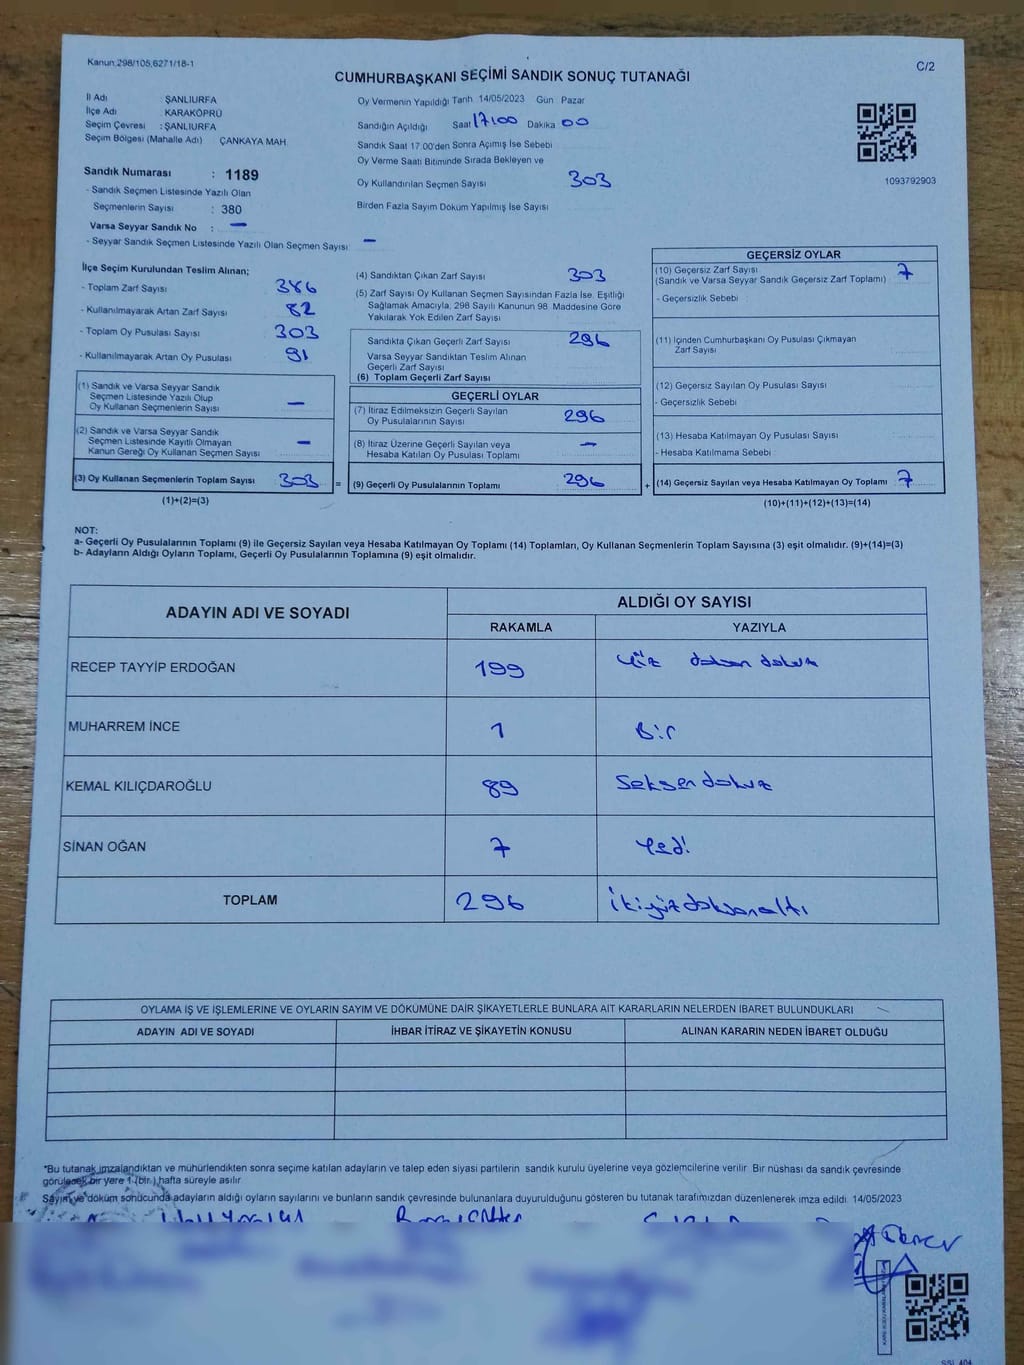 Kanun 298/105,6271/18-1
C/2
CUMHURBAŞKANI SEÇİMİ SANDIK SONUÇ TUTANAĞI
İl Adı : ŞANLIURFA
İlçe Adı : KARAKÖPRÜ
Seçim Çevresi : ŞANLIURFA
Seçim Bölgesi (Mahalle Adı) ÇANKAYA MAH.
Sandık Numarası : 1189
- Sandık Seçmen Listesinde Yazılı Olan
Seçmenlerin Sayısı : 380
Varsa Seyyar Sandık No : —
- Seyyar Sandık Seçmen Listesinde Yazılı Olan Seçmen Sayısı —
Oy Vermenin Yapıldığı Tarih 14/05/2023 Gün Pazar
Sandığın Açıldığı Saat 17:00 Dakika 00
Sandık Saat 17.00'den Sonra Açımış İse Sebebi
Oy Verme Saati Bitiminde Sırada Bekleyen ve
Oy Kullandırılan Seçmen Sayısı 303
Birden Fazla Sayım Döküm Yapılmış İse Sayısı
1093792903
İlçe Seçim Kurulundan Teslim Alınan;
- Toplam Zarf Sayısı 386
- Kullanılmayarak Artan Zarf Sayısı 82
- Toplam Oy Pusulası Sayısı 303
- Kullanılmayarak Artan Oy Pusulası 91
(1) Sandık ve Varsa Seyyar Sandık
Seçmen Listesinde Yazılı Olup
Oy Kullanan Seçmenlerin Sayısı —
(2) Sandık ve Varsa Seyyar Sandık
Seçmen Listesinde Kayıtlı Olmayan
Kanun Gereği Oy Kullanan Seçmen Sayısı —
(3) Oy Kullanan Seçmenlerin Toplam Sayısı 303 =
(1)+(2)=(3)
(4) Sandıktan Çıkan Zarf Sayısı 303
(5) Zarf Sayısı Oy Kullanan Seçmen Sayısından Fazla İse, Eşitliği
Sağlamak Amacıyla, 298 Sayılı Kanunun 98. Maddesine Göre
Yakılarak Yok Edilen Zarf Sayısı
Sandıkta Çıkan Geçerli Zarf Sayısı 296
Varsa Seyyar Sandıktan Teslim Alınan
Geçerli Zarf Sayısı
(6) Toplam Geçerli Zarf Sayısı
GEÇERLİ OYLAR
(7) İtiraz Edilmeksizin Geçerli Sayılan
Oy Pusulalarının Sayısı 296
(8) İtiraz Üzerine Geçerli Sayılan veya
Hesaba Katılan Oy Pusulası Toplamı —
(9) Geçerli Oy Pusulalarının Toplamı 296 +
GEÇERSİZ OYLAR
(10) Geçersiz Zarf Sayısı 7
(Sandık ve Varsa Seyyar Sandık Geçersiz Zarf Toplamı)
- Geçersizlik Sebebi
(11) İçinden Cumhurbaşkanı Oy Pusulası Çıkmayan
Zarf Sayısı
(12) Geçersiz Sayılan Oy Pusulası Sayısı
- Geçersizlik Sebebi
(13) Hesaba Katılmayan Oy Pusulası Sayısı
- Hesaba Katılmama Sebebi
(14) Geçersiz Sayılan veya Hesaba Katılmayan Oy Toplamı 7
(10)+(11)+(12)+(13)=(14)
NOT:
a- Geçerli Oy Pusulalarının Toplamı (9) ile Geçersiz Sayılan veya Hesaba Katılmayan Oy Toplamı (14) Toplamları, Oy Kullanan Seçmenlerin Toplam Sayısına (3) eşit olmalıdır. (9)+(14)=(3)
b- Adayların Aldığı Oyların Toplamı, Geçerli Oy Pusulalarının Toplamına (9) eşit olmalıdır.
ADAYIN ADI VE SOYADI
ALDIĞI OY SAYISI
RAKAMLA YAZIYLA
RECEP TAYYİP ERDOĞAN 199 Yüz doksan dokuz
MUHARREM İNCE 1 Bir
KEMAL KILIÇDAROĞLU 89 Seksen dokuz
SİNAN OĞAN 7 Yedi
TOPLAM 296 İkiyüzdoksanaltı
OYLAMA İŞ VE İŞLEMLERİNE VE OYLARIN SAYIM VE DÖKÜMÜNE DAİR ŞİKAYETLERLE BUNLARA AİT KARARLARIN NELERDEN İBARET BULUNDUKLARI
ADAYIN ADI VE SOYADI İHBAR İTİRAZ VE ŞİKAYETİN KONUSU ALINAN KARARIN NEDEN İBARET OLDUĞU
*Bu tutanak imzalandıktan ve mühürlendikten sonra seçime katılan adayların ve talep eden siyasi partilerin sandık kurulu üyelerine veya gözlemcilerine verilir. Bir nüshası da sandık çevresinde
görülecek bir yere 1 (bir) hafta süreyle asılır.
Sayım ve döküm sonucunda adayların aldığı oyların sayılarını ve bunların sandık çevresinde bulunanlara duyurulduğunu gösteren bu tutanak tarafımızdan düzenlenerek imza edildi. 14/05/2023